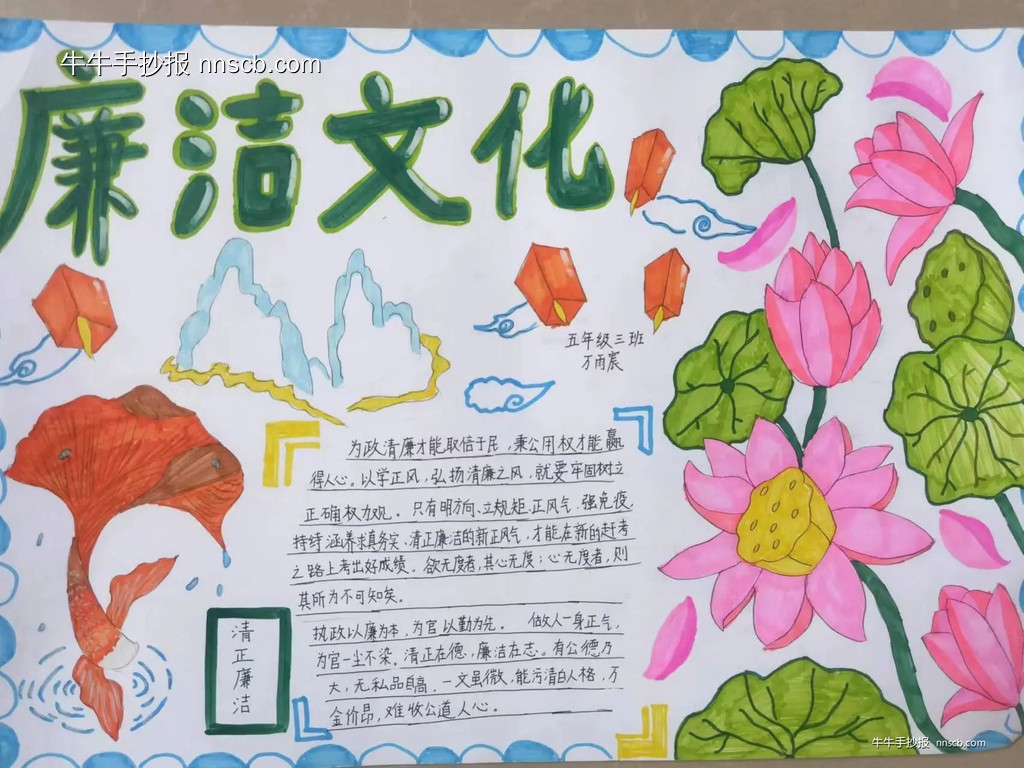 牛牛手抄报 nnscb.com
廉洁文化
五年级三班
万雨宸
为政清廉才能取信于民，秉公用权才能赢
得人心。以学正风，弘扬清廉之风，就要牢固树立
正确权力观。只有明方向、立规矩、正风气、强免疫，
持续涵养求真务实、清正廉洁的新正风气，才能在新的赶考
之路上考出好成绩。欲无度者，其心无度；心无度者，则
其所为不可知矣。
执政以廉为本，为官以勤为先。 做人一身正气，
为官一尘不染。清正在德，廉洁在志。有公德乃
大，无私品自高。一文虽微，能污清白人格，万
金价昂，难收公道人心。
清正廉洁
牛牛手抄报 nnscb.com